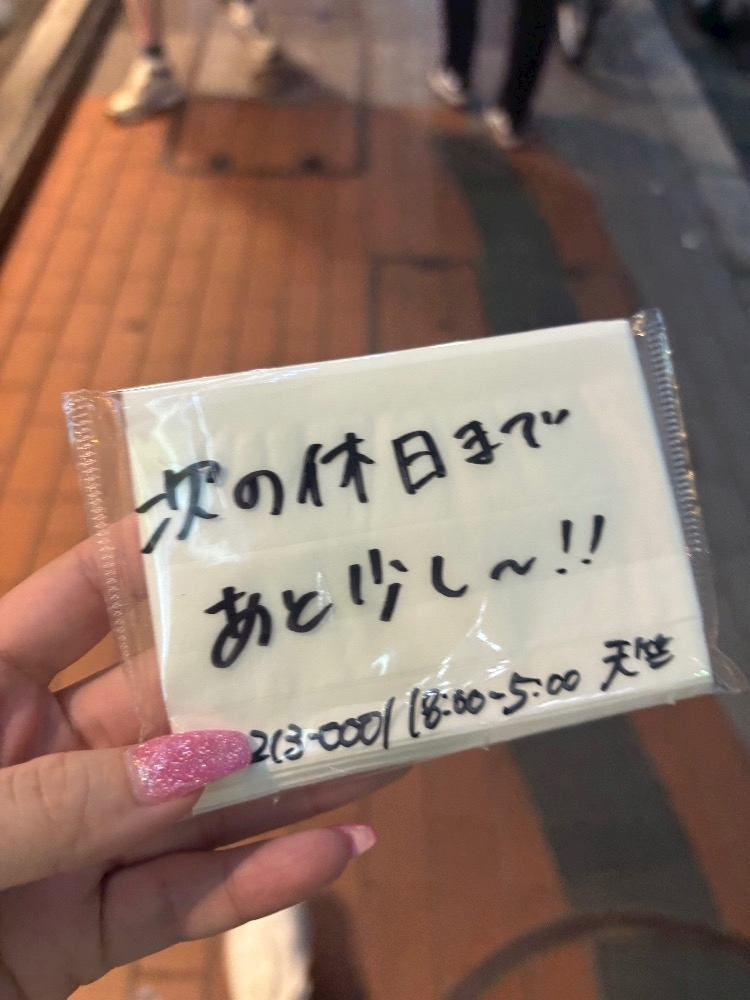 次の休日まで
あと少し～!!
213-0001 18:00-5:00 天竺